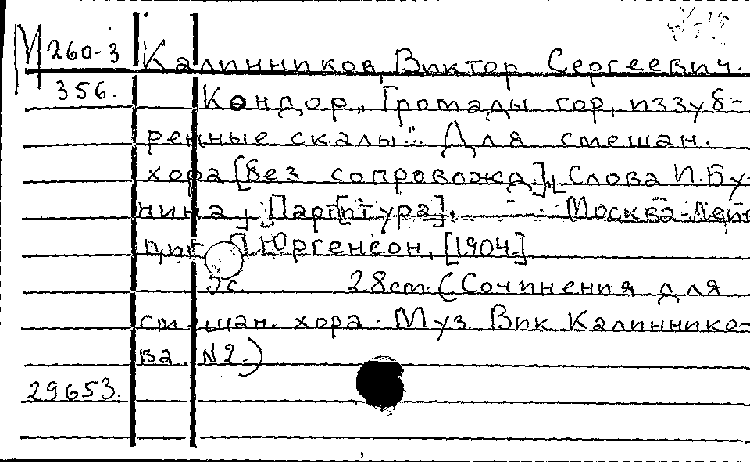 М 260-3 Калинников, Виктор Сергеевич.
356. Кондор, "Громады гор, иззуб-
ренные скалы". Для смешан.
хора [без сопровожд.], Слова И. Бу-
нина, [Партитура]. Москва-Лейп
циг П. Юргенсон, [1904.]
5с. 28cm. (Сочинения для
смешан. хора. Муз Вик Калиннико-
ва. N2.)
29653.